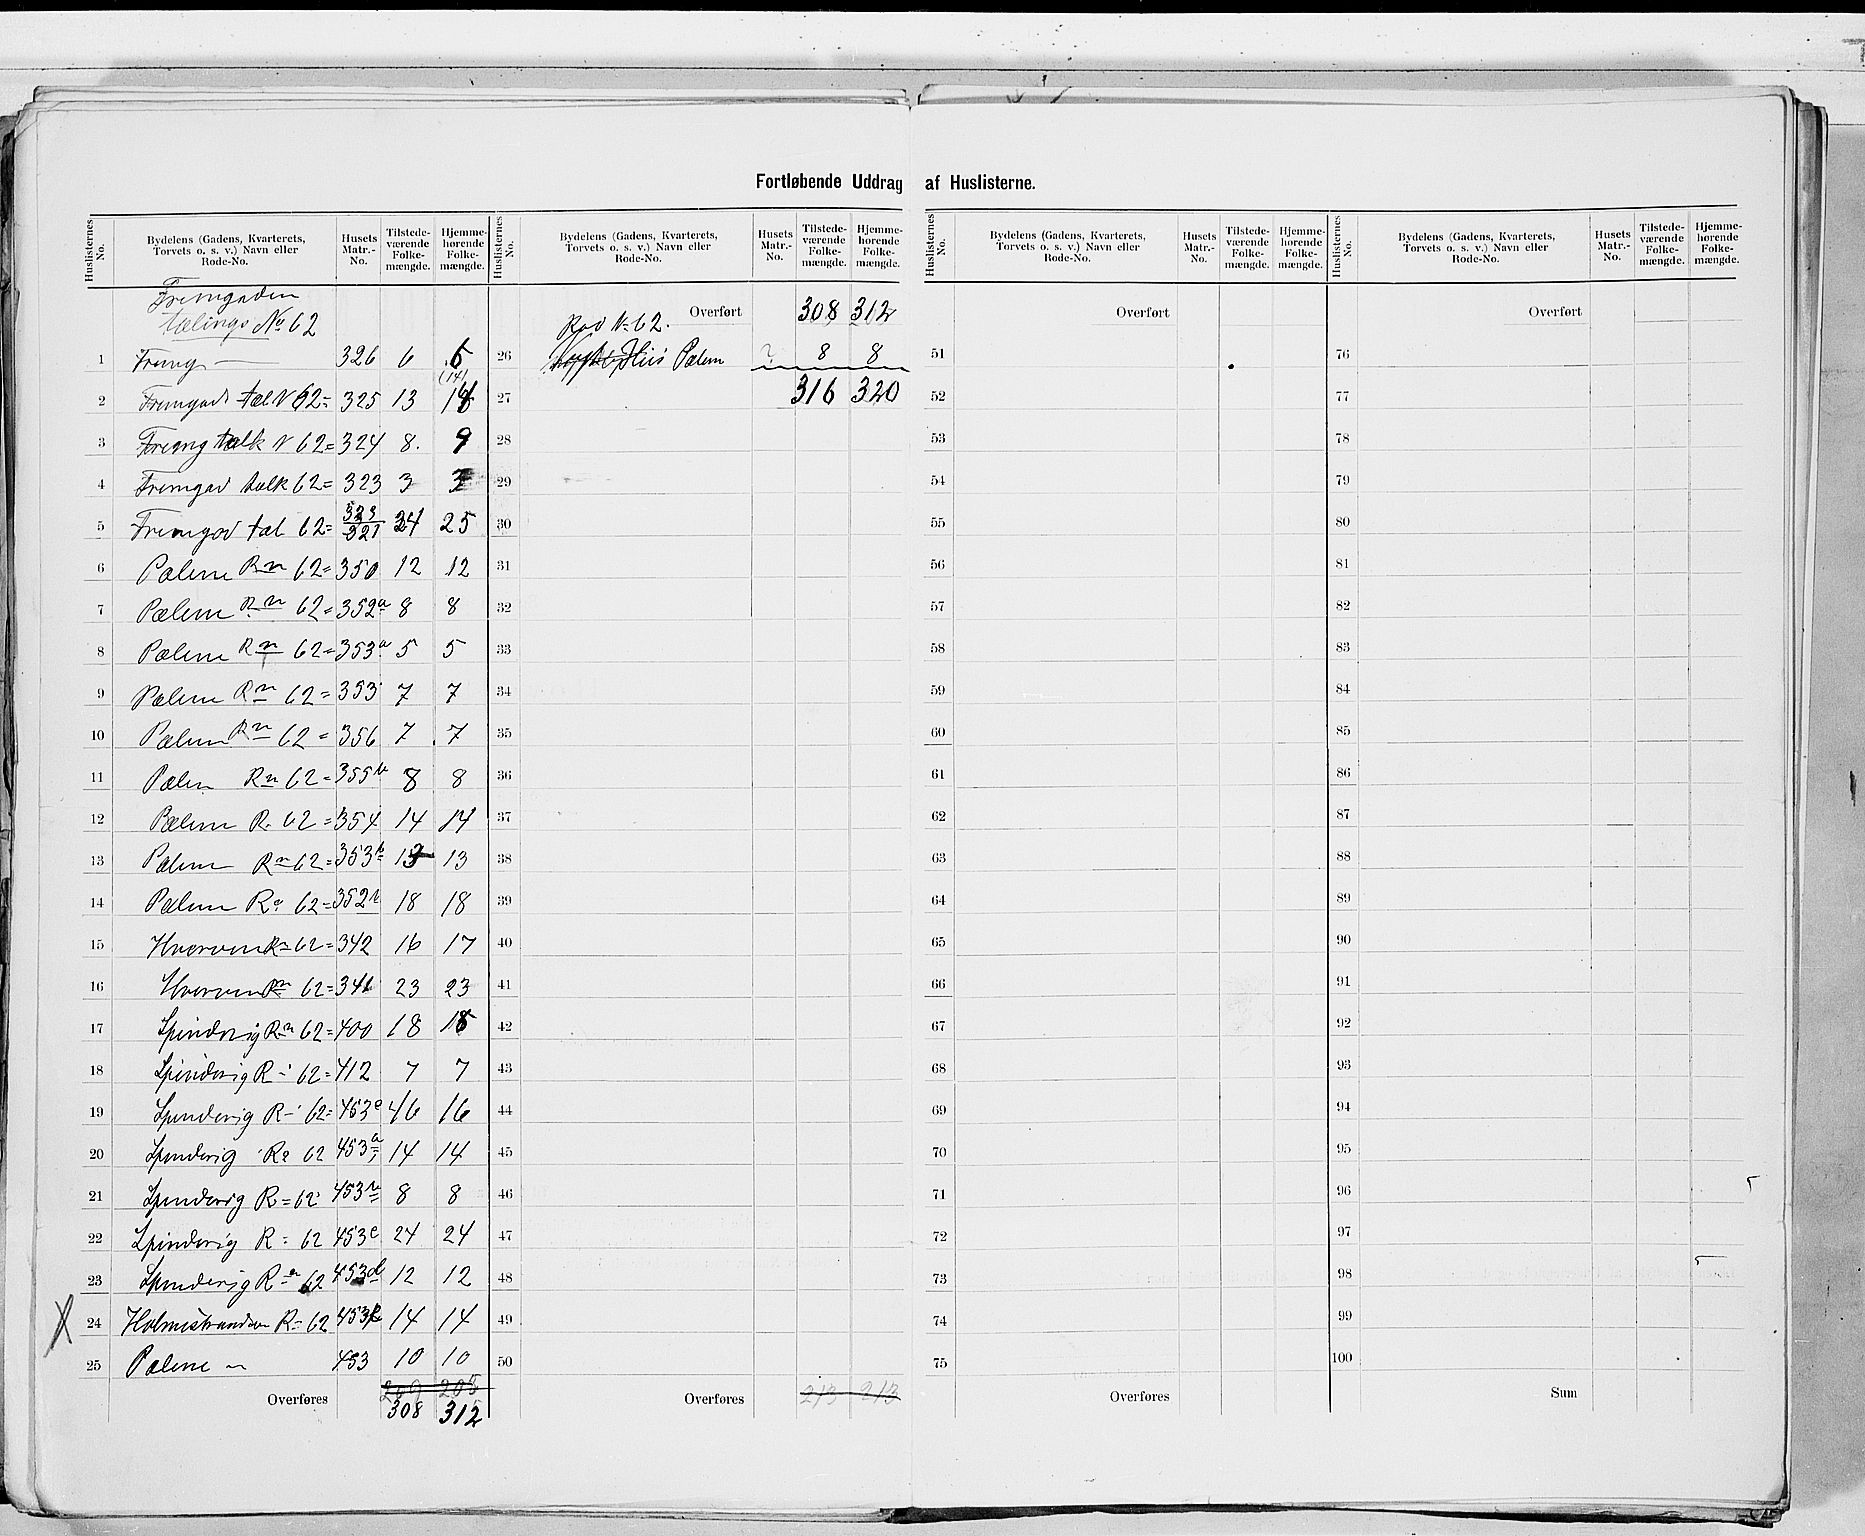 Fortløbende Uddrag af Huslisterne.
Huslisternes No. Bydelens (Gadens, Kvarterets, Torvets o. s. v.) Navn eller Rode-No. Husets Matr.-No. Tilstede-værende Folke-mængde. Hjemme-hørende Folke-mængde.
Fremgaden
tælings No 62
1 Fremg 326 6 6
(14)
2 Fremgad tæl N 62= 325 13 14
3 Fremg tælk N 62= 324 8. 9
4 Fremgad tælk 62= 323 3 3
5 Fremgad tæl 62= 323/321 24 25
6 Pælene Rn 62= 350 12 12
7 Pælene Rn 62= 352a 8 8
8 Pælene Rn 62= 353a 5 5
9 Pælene Rn 62= 353 7 7
10 Pælene Rn 62 = 356 7 7
11 Pælen Rn 62= 355b 8 8
12 Pælene R. 62 = 354 14 14
13 Pælene Rn 62= 353b 13 13
14 Pælene R 62= 352b 18 18
15 Hverven Rn 62= 342 16 17
16 Hverven Rn 62= 341 23 23
17 Spindvig Rn 62= 400 18 18
18 Spindvig R 62= 412 7 7
19 Spindvig R 62= 453e 16 16
20 Spindvig R 62 453a 14 14
21 Spindvig R= 62 453b 8 8
22 Spindvig R= 62 453c 24 24
23 Spindvig Rn 62 453d 12 12
24 Holmestrandsv R= 62 453 14 14
25 Pælene 453 10 10
Overføres 269 205
308 312
Huslisternes No. Bydelens (Gadens, Kvarterets, Torvets o. s. v.) Navn eller Rode-No. Husets Matr.-No. Tilstede-værende Folke-mængde. Hjemme-hørende Folke-mængde.
Overført 308 312
Rod N= 62.
26 Hus Pælen 8 8
27 316 320
28
29
30
31
32
33
34
35
36
37
38
39
40
41
42
43
44
45
46
47
48
49
50
Overføres 213 213
Huslisternes No. Bydelens (Gadens, Kvarterets, Torvets o. s. v.) Navn eller Rode-No. Husets Matr.-No. Tilstede-værende Folke-mængde. Hjemme-hørende Folke-mængde.
Overført
51
52
53
54
55
56
57
58
59
60
61
62
63
64
65
66
67
68
69
70
71
72
73
74
75
Overføres
Huslisternes No. Bydelens (Gadens, Kvarterets, Torvets o. s. v.) Navn eller Rode-No. Husets Matr.-No. Tilstede-værende Folke-mængde. Hjemme-hørende Folke-mængde.
Overført
76
77
78
79
80
81
82
83
84
85
86
87
88
89
90
91
92
93
94
95
96
97
98
99
100
Sum